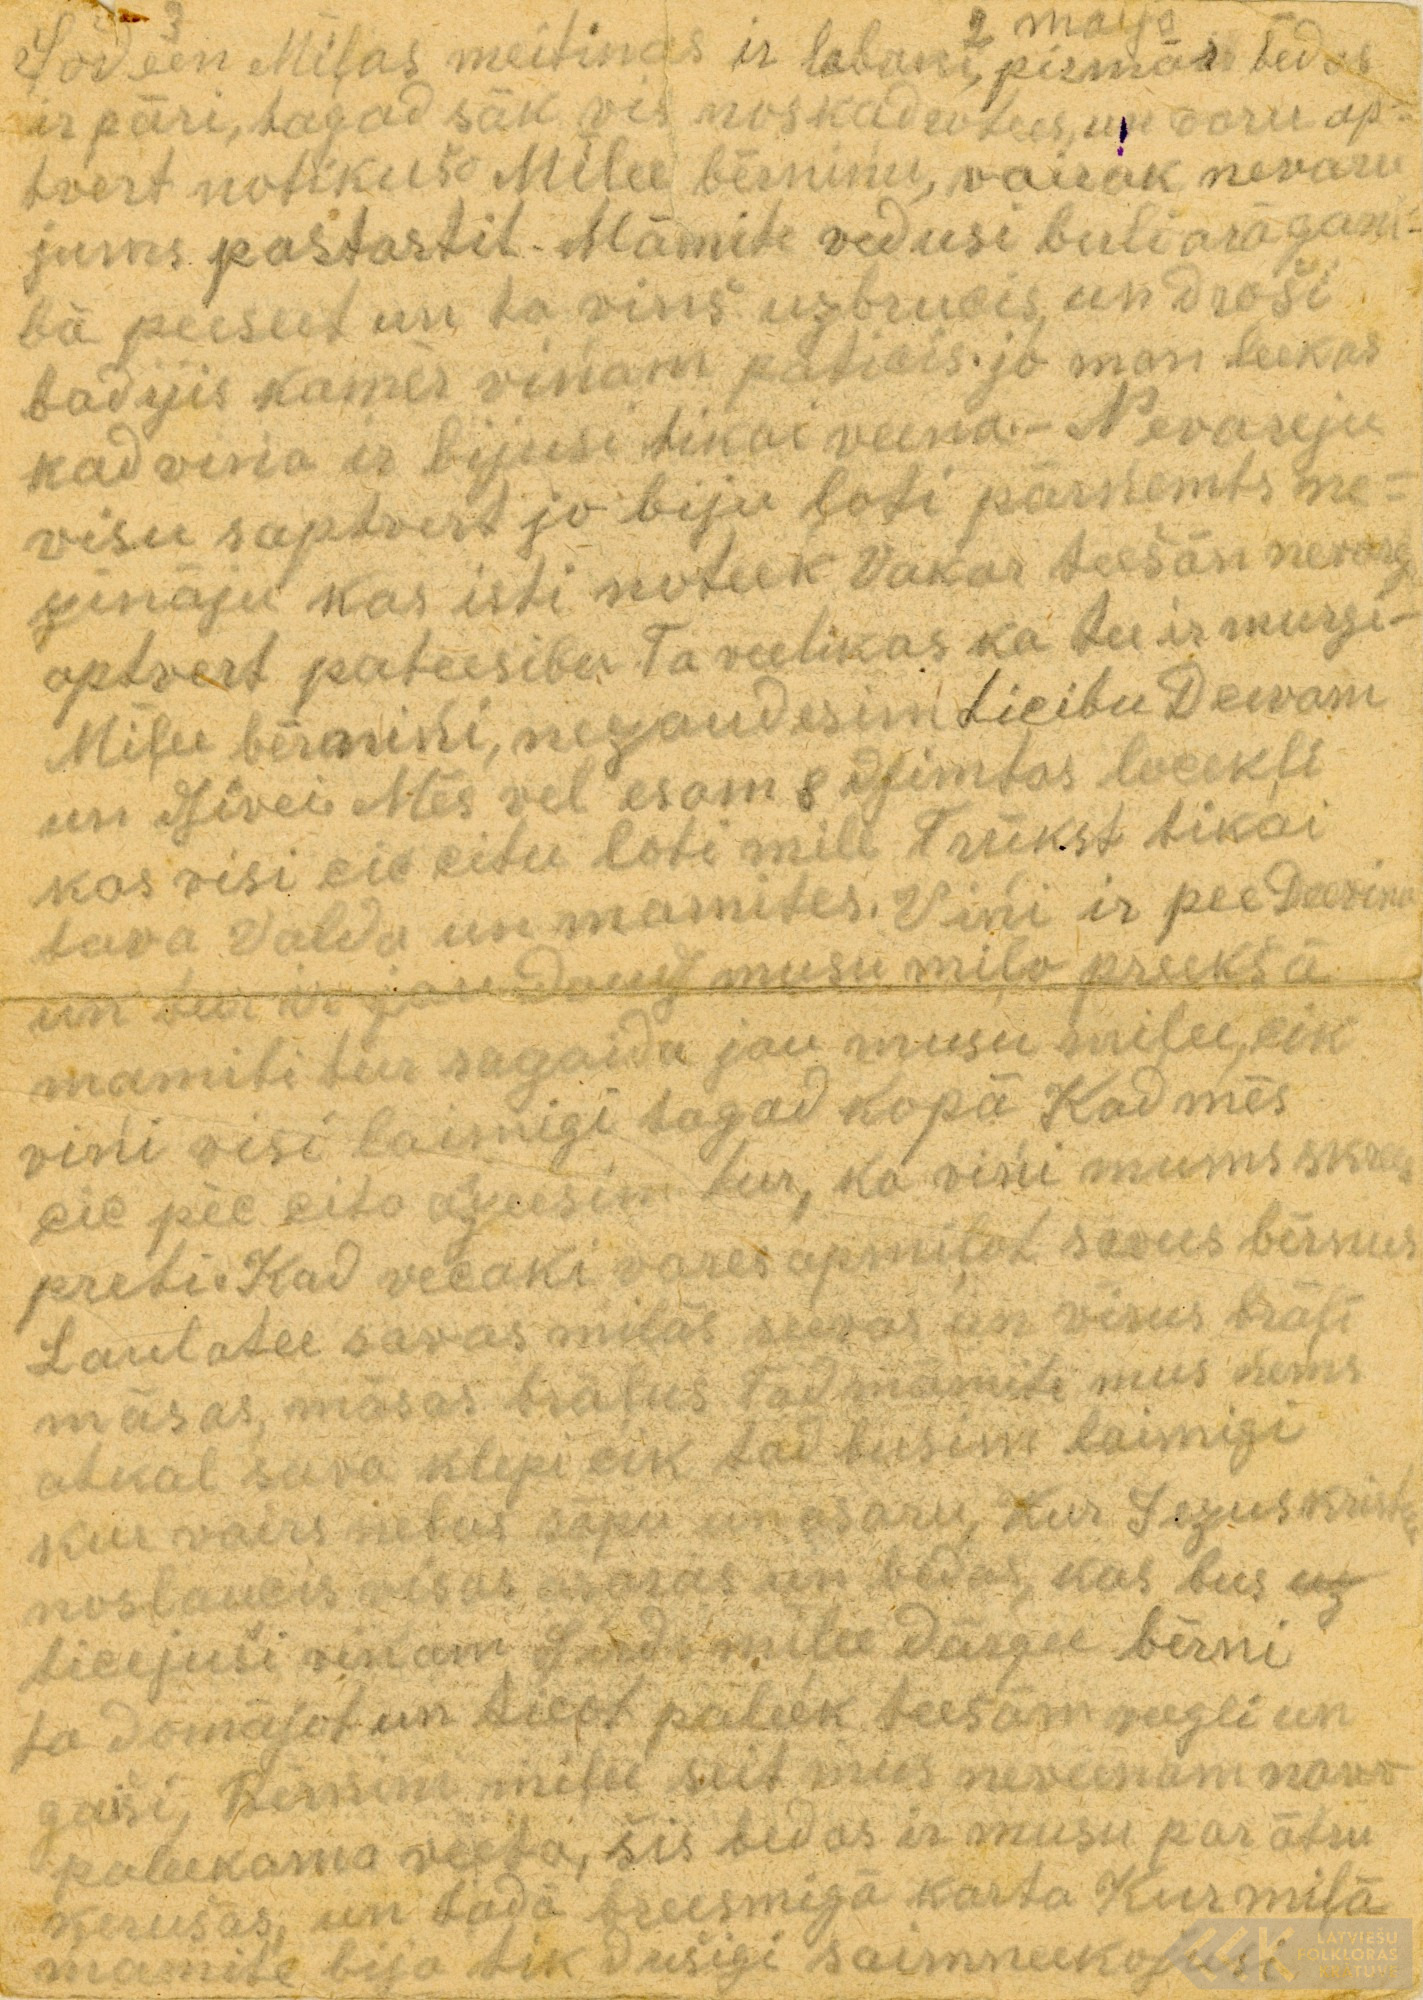 3
2 maijs
Šodeen Mīļas meitinas ir labani, pirmās bēdas
ir pāri, tagad sāk vis noskadrotees, un varu ap-
tvert notikušo Mīlee bērninu, vairak nevaru
jums pastastit. Māmite vedusi buli arā gani-
bā peeseet un ta vinš uzbrucis, un droši
badijis kamēr viņam paticis. jo man leekas
kad vina ir bijusi tikai veena.- Nevareju
visu saptvert jo biju ļoti pārņemts ne=
zināju kas isti noteek Vakar teešām nevarēj
aptvert pateesibu Ta veelikas ka tee ir murgi-
Mīļee bērniņi, nezaudesim ticibu Deevam
un dzivei. Mēs vel esam 8 dzimtas locekļi
kas visi cic citu loti mill Trūkst tikai
tava Valda un mamites. Viņi ir pee Deevina
un tur ir jau daudz musu milo preekšā
mamiti tur sagaida jau musu milee, cik
viņi visi laimigi tagad kopā Kad mēs
cic pēc cita aizeesim tur, ka viņi mums skrees
preti. Kad vecaki vares apmiļot savus bērnus
Laulatee savas milās seevas un virus brāļi
māsas, māsas brāļus Tad māmite mus ņems
atkal sava klepi cik tad busim laimigi
kur vairs nebus sāpu un asaru, Kur Jezus Kristus
noslaucis visas asaras un bedas, kas bus uz
ticejuši viņam Sirds milee dārgee bērni
ta domājot un ticot paleek teešām veegli un
gaiši, Bērnini miļee šeit mus neveenam nava
paleekama veeta, šis bedas ir musu par ātru
ķerušas, un tadā breesmigā karta Kur milā
mamite bija tik dušigi saimneekojusi
LATVIEŠU
FOLKLORAS
KRĀTUVE